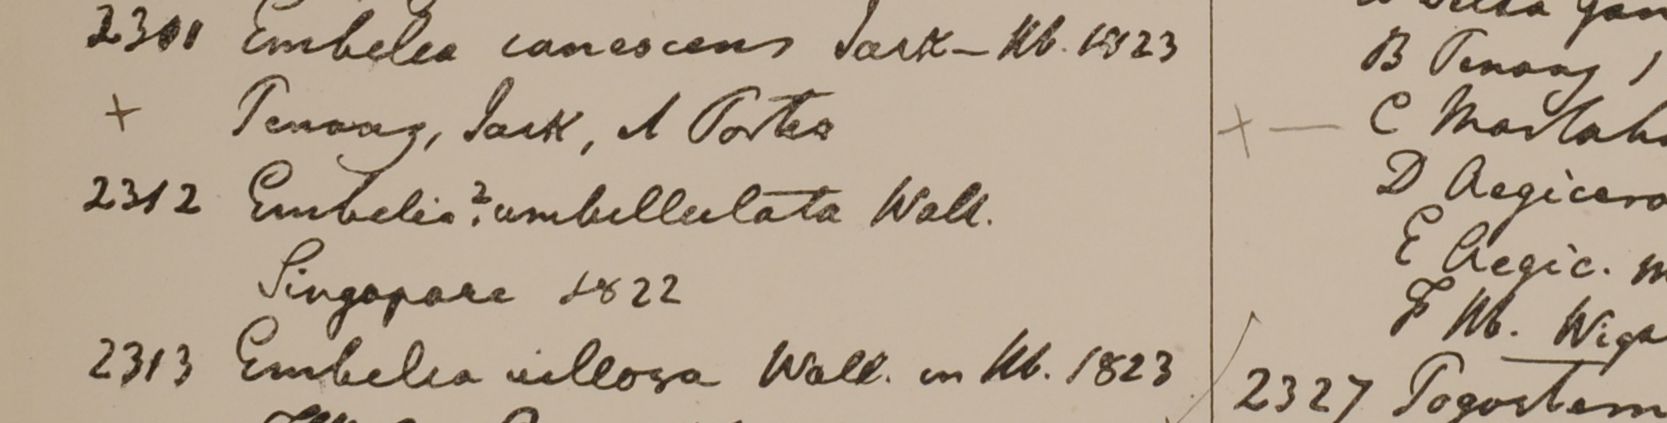 2311 Embelia canescens Jack – Hb. 1823
+ Penang, Jack, et Porter
2312 Embelia? umbellulata Wall.
Singapore 1822
2313 Embelia villosa Wall. in Hb. 1823
B Penang 1
+ — C Martab
D Aegicera
E Aegic. m
F Hb. Wigh
2327 Pogostem